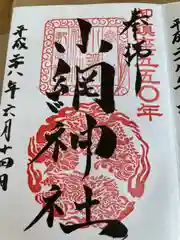 奉拝
御鎮座五五〇年
小網神社
平成二八年六月十四日